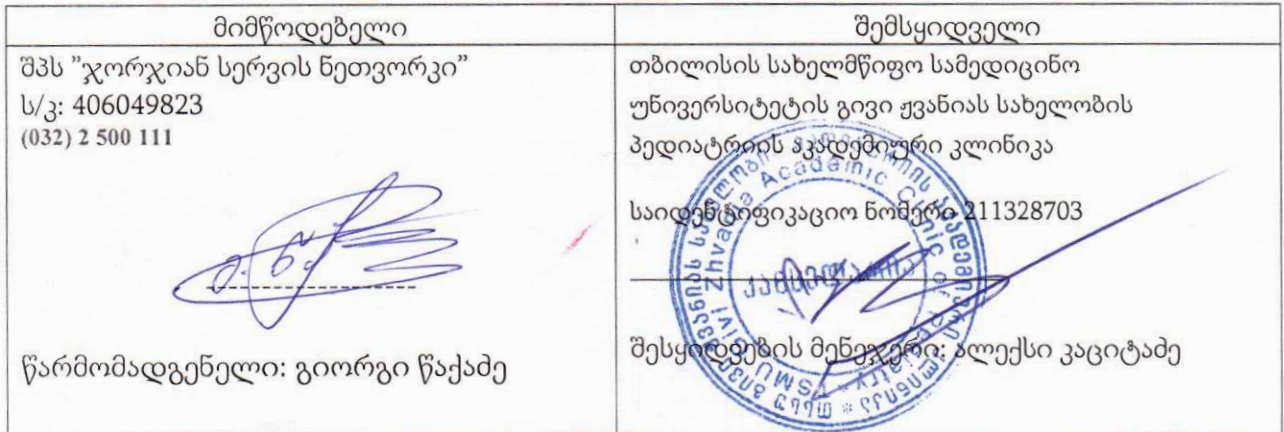 მიმწოდებელი
შპს "ჯორჯიან სერვის ნეთვორკი"
ს/კ: 406049823
(032) 2 500 111
წარმომადგენელი: გიორგი წაქაძე
შემსყიდველი
თბილისის სახელმწიფო სამედიცინო
უნივერსიტეტის გივი ჟვანიას სახელობის
პედიატრიის აკადემიური კლინიკა
საიდენტიფიკაციო ნომერი 211328703
შესყიდვების მენეჯერი: ალექსი კაციტაძე
TSMU Givi Zhvania Academic Clinic of
კანცელარია